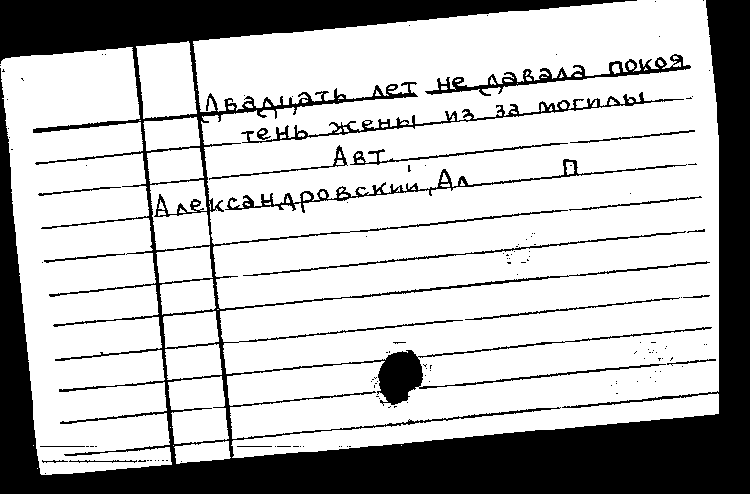 Двадцать лет не давала покоя
тень жены из за могилы
Авт.
Александровский, Ал П